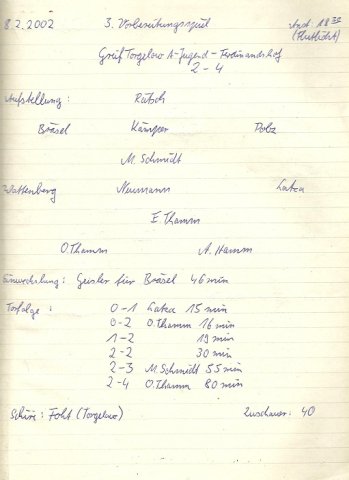 8.2.2002 3. Vorbereitungsspiel Anst. 18 30
(Flutlicht)
Greif Torgelow A-Jugend - Ferdinandshof
2 - 4
Aufstellung: Rätsch
Bräsel Kämper Dobz
M. Schmidt
Wattenberg Neumann Latza
E. Thamm
O. Thamm A. Hamm
Einwechslung: Geisler für Bräsel 46 min
Torfolge: 0-1 Latza 15 min
0-2 O. Thamm 16 min
1-2 19 min
2-2 30 min
2-3 M. Schmidt 55 min
2-4 O. Thamm 80 min
Schiri: Foht (Torgelow) Zuschauer: 40